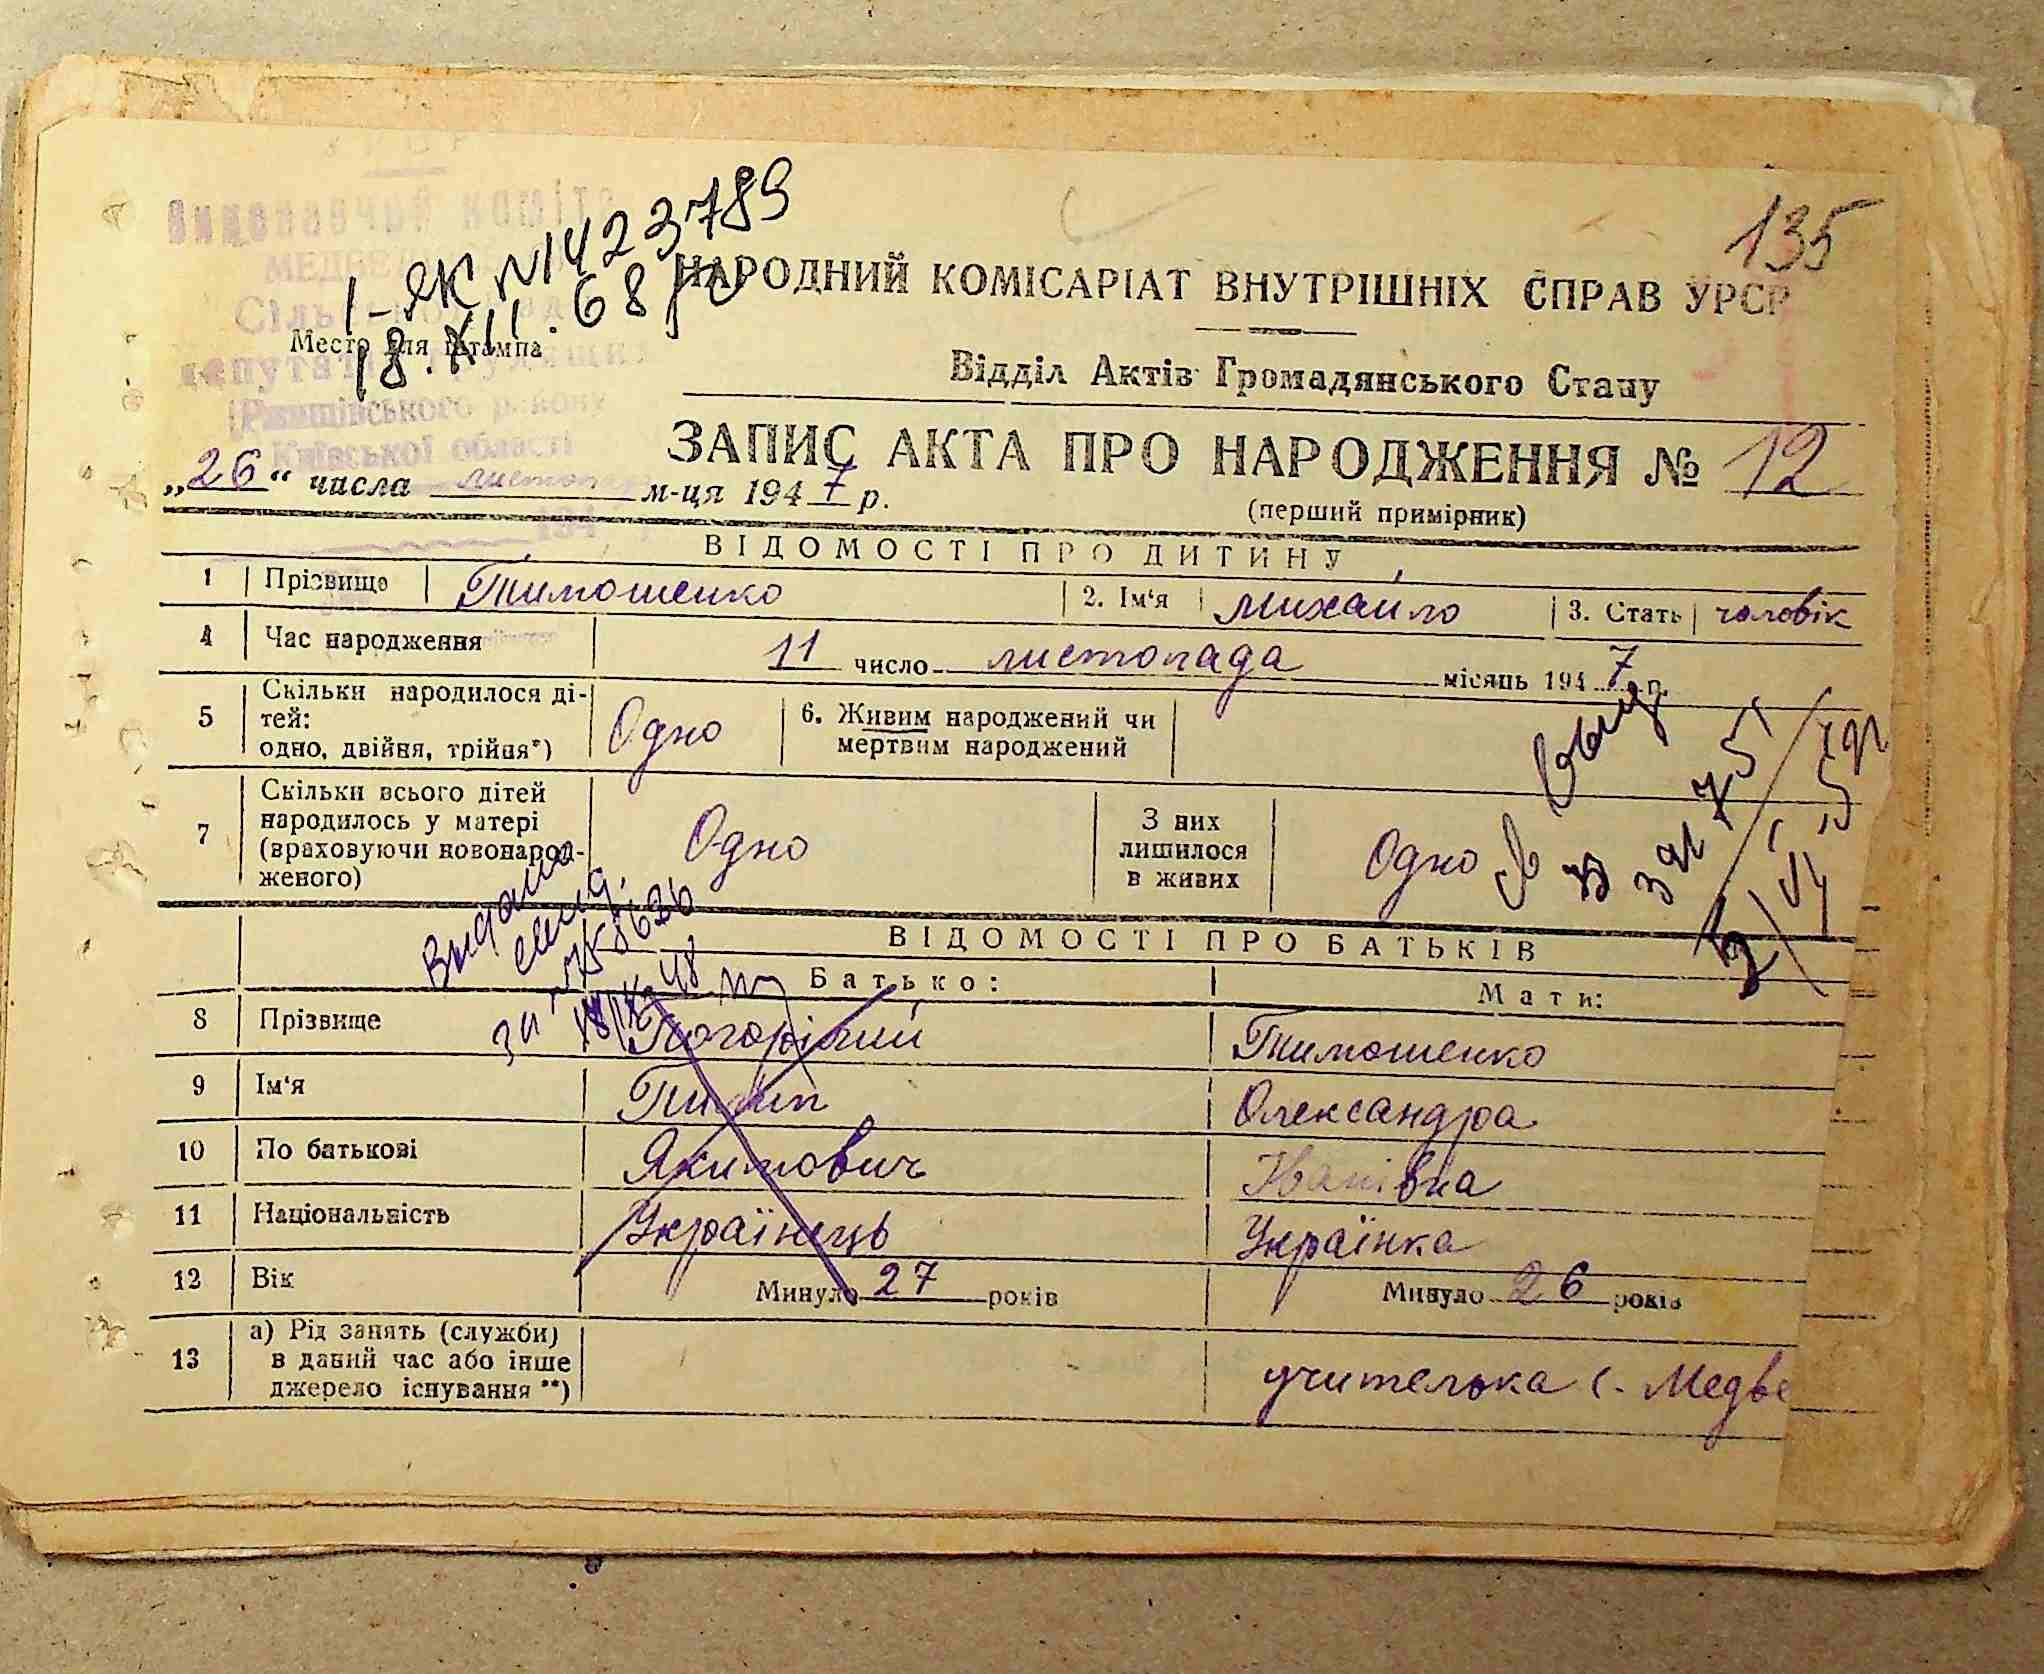 УРСР
Виконавчий коміте
Сіль
депутатів трудящих
Ржищівського району
Київської області
І-ЯК № 423789
18.XII.68
135
НАРОДНИЙ КОМІСАРІАТ ВНУТРІШНІХ СПРАВ УРСР
Место для штампа
Відділ Актів Громадянського Стану
ЗАПИС АКТА ПРО НАРОДЖЕННЯ № 12
„26“ числа листопад м-ця 1947 р.
(перший примірник)
ВІДОМОСТІ ПРО ДИТИНУ
1 Прізвище Тимошенко 2. Ім‘я Михайло 3. Стать чоловік
4 Час народження 11 число листопада місяць 1947 р.
5 Скільки народилося ді-
тей:
одно, двійня, трійня*) Одно 6. Живим народжений чи
мертвим народжений
7 Скільки всього дітей
народилось у матері
(враховуючи новонарод-
женого) Одно З них
лишилося
в живих Одно
Видано
свид.
ВІДОМОСТІ ПРО БАТЬКІВ
Батько: Мати:
8 Прізвище Погорілий Тимошенко
9 Ім‘я Пилип Олександра
10 По батькові Якимович Іванівна
11 Національність Українець Українка
12 Вік Минуло 27 років Минуло 26 років
13 а) Рід занять (служби)
в даний час або інше
джерело існування **) учителька с. Медве